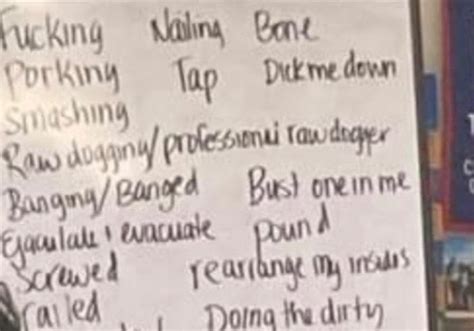 Fucking Nailing Bone
Porking Tap Dick me down
Smashing
Raw dogging/professional raw dogger
Banging/Banged Bust one in me
Ejaculate & evacuate pound
Screwed rearrange my insides
railed Doing the dirty